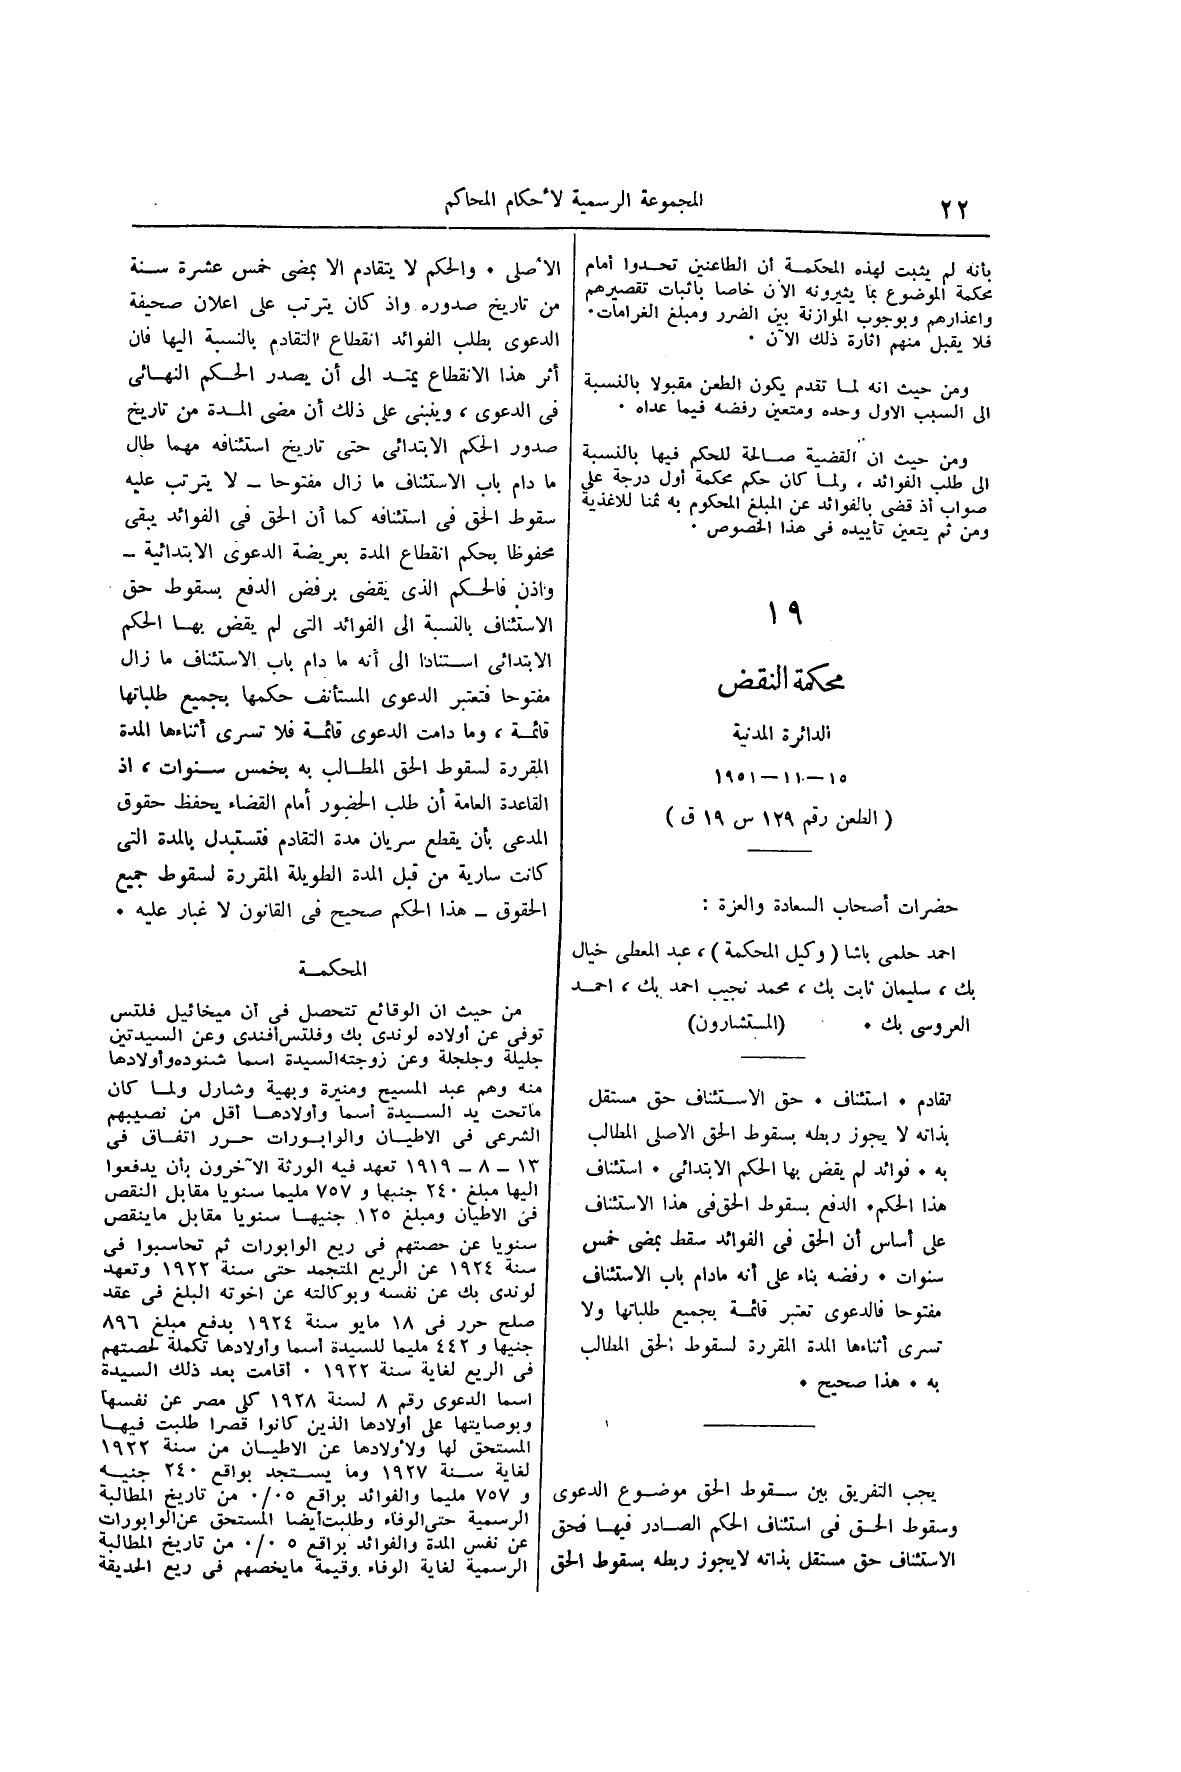 ٢٢
المجموعة الرسمية لأحكام المحاكم
بأنه لم يثبت لهذه المحكمة أن الطاعنين تحدوا أمام
محكمة الموضوع بما يثيرونه الآن خاصا باثبات تقصيرهم
واعذارهم وبوجوب الموازنة بين الضرر ومبلغ الغرامات.
فلا يقبل منهم اثارة ذلك الآن .
ومن حيث انه لما تقدم يكون الطعن مقبولا بالنسبة
الى السبب الاول وحده ومتعين رفضه فيما عداه .
ومن حيث ان القضية صالحة للحكم فيها بالنسبة
الى طلب الفوائد ، ولما كان حكم محكمة أول درجة على
صواب أذ قضى بالفوائد عن المبلغ المحكوم به ثمنا للاغذية
ومن ثم يتعين تأييده فى هذا الخصوص .
١٩
محكمة النقض
الدائرة المدنية
١٥–١١–١٩٥١
( الطعن رقم ١٢٩ س ١٩ ق )
حضرات أصحاب السعادة والعزة :
احمد حلمى باشا ( وكيل المحكمة ) ، عبد المعطى خيال
بك ، سليمان ثابت بك ، محمد نجيب احمد بك ، احمد
العروسى بك . (المستشارون)
تقادم . استئناف . حق الاستئناف حق مستقل
بذاته لا يجوز ربطه بسقوط الحق الاصلى المطالب
به . فوائد لم يقض بها الحكم الابتدائى . استئناف
هذا الحكم. الدفع بسقوط الحق فى هذا الاستئناف
على أساس أن الحق فى الفوائد سقط بمضى خمس
سنوات . رفضه بناء على أنه مادام باب الاستئناف
مفتوحا فالدعوى تعتبر قائمة بجميع طلباتها ولا
تسرى أثناءها المدة المقررة لسقوط الحق المطالب
به . هذا صحيح .
يجب التفريق بين سقوط الحق موضوع الدعوى
وسقوط الحق فى استئناف الحكم الصادر فيها فحق
الاستئناف حق مستقل بذاته لايجوز ربطه بسقوط الحق
الأصلى . والحكم لا يتقادم الا بمضى خمس عشرة سنة
من تاريخ صدوره واذ كان يترتب على اعلان صحيفة
الدعوى بطلب الفوائد انقطاع التقادم بالنسبة اليها فان
أثر هذا الانقطاع يمتد الى أن يصدر الحكم النهائى
فى الدعوى ، وينبنى على ذلك أن مضى المدة من تاريخ
صدور الحكم الابتدائى حتى تاريخ استئنافه مهما طال
ما دام باب الاستئناف ما زال مفتوحا – لا يترتب عليه
سقوط الحق فى استئنافه كما أن الحق فى الفوائد يبقى
محفوظا بحكم انقطاع المدة بعريضة الدعوى الابتدائية –
واذن فالحكم الذى يقضى برفض الدفع بسقوط حق
الاستئناف بالنسبة الى الفوائد التى لم يقض بها الحكم
الابتدائى استنادا الى أنه ما دام باب الاستئناف ما زال
مفتوحا فتعتبر الدعوى المستأنف حكمها بجميع طلباتها
قائمة ، وما دامت الدعوى قائمة فلا تسرى أثناءها المدة
المقررة لسقوط الحق المطالب به بخمس سنوات ، اذ
القاعدة العامة أن طلب الحضور أمام القضاء يحفظ حقوق
المدعى بأن يقطع سريان مدة التقادم فتستبدل بالمدة التى
كانت سارية من قبل المدة الطويلة المقررة لسقوط جميع
الحقوق – هذا الحكم صحيح فى القانون لا غبار عليه .
المحكمة
من حيث ان الوقائع تتحصل فى أن ميخائيل فلتس
توفى عن أولاده لوندى بك وفلتس أفندى وعن السيدتين
جليلة وجلجلة وعن زوجته السيدة اسما شنوده وأولادها
منه وهم عبد المسيح ومنيرة وبهية وشارل ولما كان
ماتحت يد السيدة أسما وأولادها أقل من نصيبهم
الشرعى فى الاطيان والوابورات حرر اتفاق فى
١٣ – ٨ – ١٩١٩ تعهد فيه الورثة الآخرون بأن يدفعوا
اليها مبلغ ٢٤٠ جنيها و ٧٥٧ مليما سنويا مقابل النقص
فى الاطيان ومبلغ ١٢٥ جنيها سنويا مقابل ماينقص
سنويا عن حصتهم فى ريع الوابورات ثم تحاسبوا فى
سنة ١٩٢٤ عن الريع المتجمد حتى سنة ١٩٢٢ وتعهد
لوندى بك عن نفسه وبوكالته عن اخوته البلغ فى عقد
صلح حرر فى ١٨ مايو سنة ١٩٢٤ بدفع مبلغ ٨٩٦
جنيها و ٤٤٢ مليما للسيدة أسما وأولادها تكملة لحصتهم
فى الريع لغاية سنة ١٩٢٢ . أقامت بعد ذلك السيدة
اسما الدعوى رقم ٨ لسنة ١٩٢٨ كلى مصر عن نفسها
وبوصايتها على أولادها الذين كانوا قصرا طلبت فيها
المستحق لها ولأولادها عن الاطيان من سنة ١٩٢٢
لغاية سنة ١٩٢٧ وما يستجد بواقع ٢٤٠ جنيه
و ٧٥٧ مليما والفوائد بواقع ٥٠/٠ من تاريخ المطالبة
الرسمية حتى الوفاء وطلبت أيضا المستحق عن الوابورات
عن نفس المدة والفوائد بواقع ٥ ٠/٠ من تاريخ المطالبة
الرسمية لغاية الوفاء وقيمة مايخصهم فى ريع الحديقة